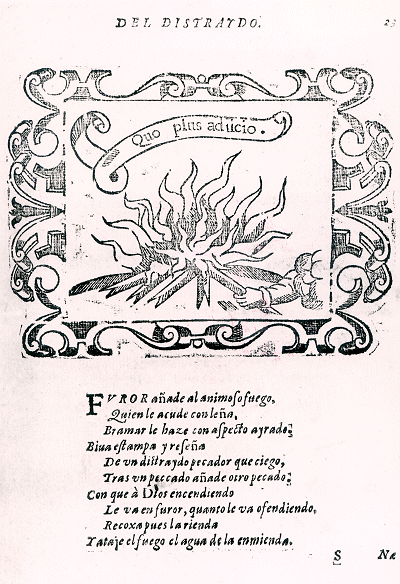 DEL DISTRAYDO.
23
Quo plus adiicio.
FVROR añade al animoso fuego,
Quien le acude con leña,
Bramar le haze con aspecto ayrado:
Biua estampa y reseña
De vn distraydo pecador que ciego,
Tras vn peccado añade otro pecado:
Con que à Dios encendiendo
Le va en furor, quanto le va ofendiendo,
Recoxa pues la rienda
Y ataje el fuego el agua de la enmienda.
S
Na